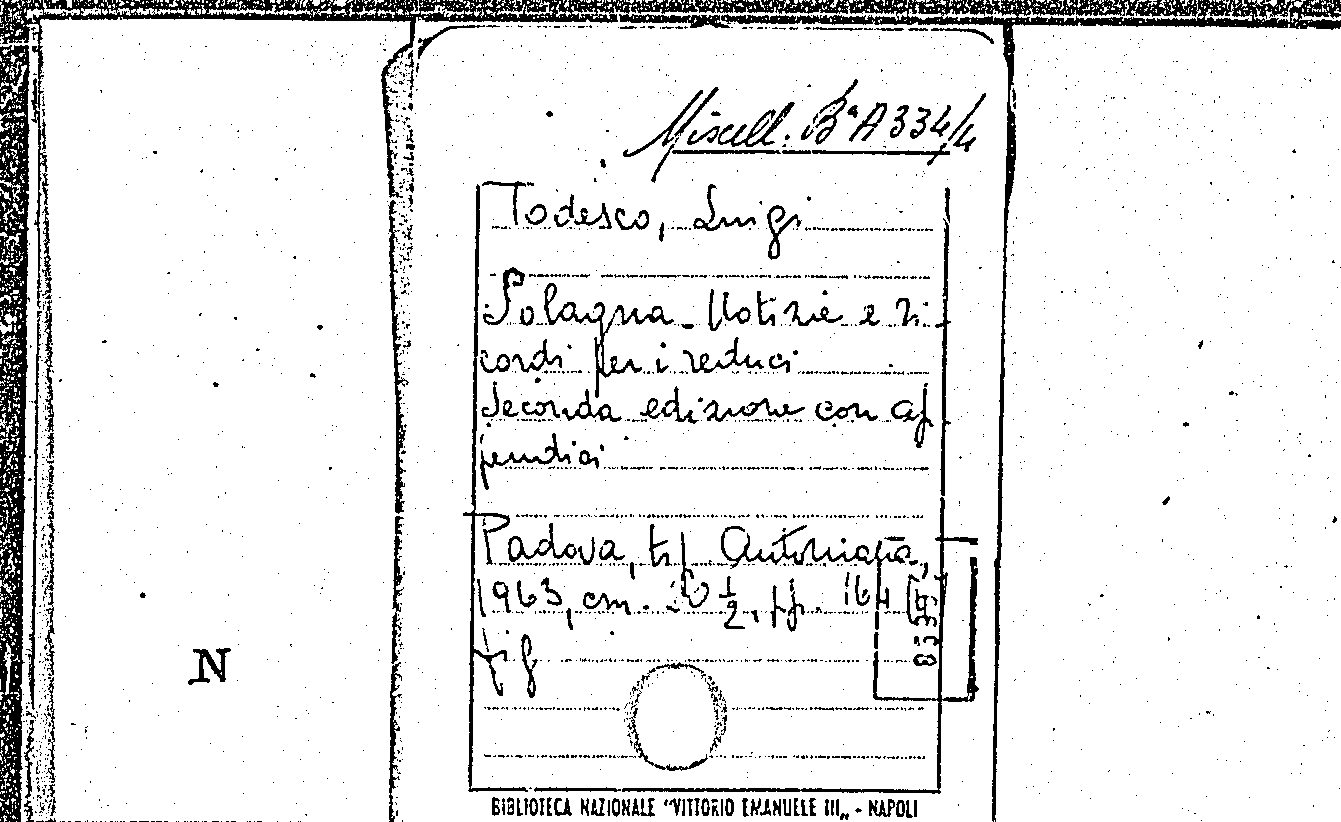 Miscell. Bª A 334/4
Todesco, Luigi
Solagna - Notizie e ri-
cordi per i reduci
Seconda edizione con ap-
pendici
Padova, tip. Antoniana,
1963, cm. 20 ½, pp. 164
fig
N
BIBLIOTECA NAZIONALE "VITTORIO EMANUELE III„ - NAPOLI